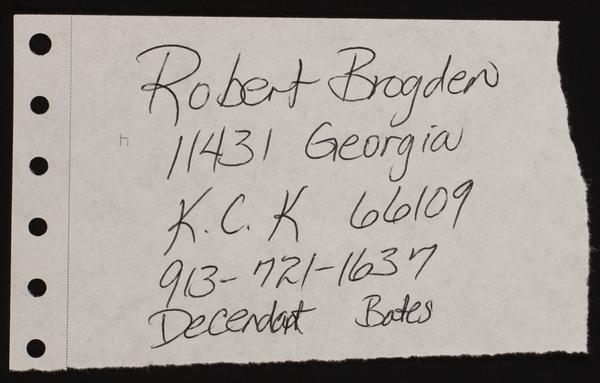 Robert Brogden
11431 Georgia
K.C.K 66109
913-721-1637
Decendant Bates